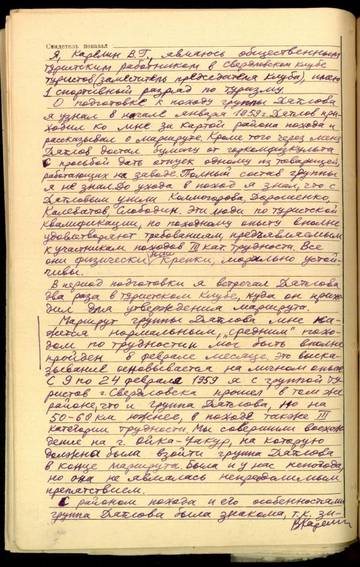 Свидетель показал
Я, Карелин В.Г., являюсь общественным
туристским работником в свердловском клубе
туристов (заместитель председателя Клуба), имею
1 спортивный разряд по туризму.
О подготовке к походу группы Дятлова
я узнал в начале января 1959 г. Дятлов при-
ходил ко мне за картой района похода и
рассказывал о маршруте. Кроме того через меня
Дятлов достал бумагу от горкомфизкульта
с просьбой дать отпуск одному из товарищей,
работающих на заводе. Полный состав группы
я не знал. До ухода в поход я знал, что с
Дятловым учим Колмогорова, Дорошенко,
Колеватов, Слободин. Эти люди по туристской
квалификации, по походному опыту вполне
удовлетворяют требованиям предъявляемым
к участникам походов III кат. трудности. Все
они физически крепки, морально устой-
чивы.
В период подготовки я встречал Дятлова
два раза в туристском клубе, куда он прихо-
дил для утверждения маршрута.
Маршрут группы Дятлова мне ка-
жется нормальным, "средним" похо-
дом по трудности и мог быть вполне
пройден в феврале месяце. Это выска-
зывание основывается на личном опыте.
С 9 по 24 февраля 1959 я с группой ту-
ристов г. Свердловска прошел в том же
районе, что и группа Дятлова, но на
50-60 км южнее, в походе также III
категории трудности. Мы совершили восхож-
дение на г. Ойка-Чакур, на которую
должна была взойти группа Дятлова
в конце маршрута. Была и у нас непогода,
но она не являлась непреодолимым
препятствием.
С районом похода и его особенностями
группа Дятлова была знакома, т.к. зи-
ВКарелин